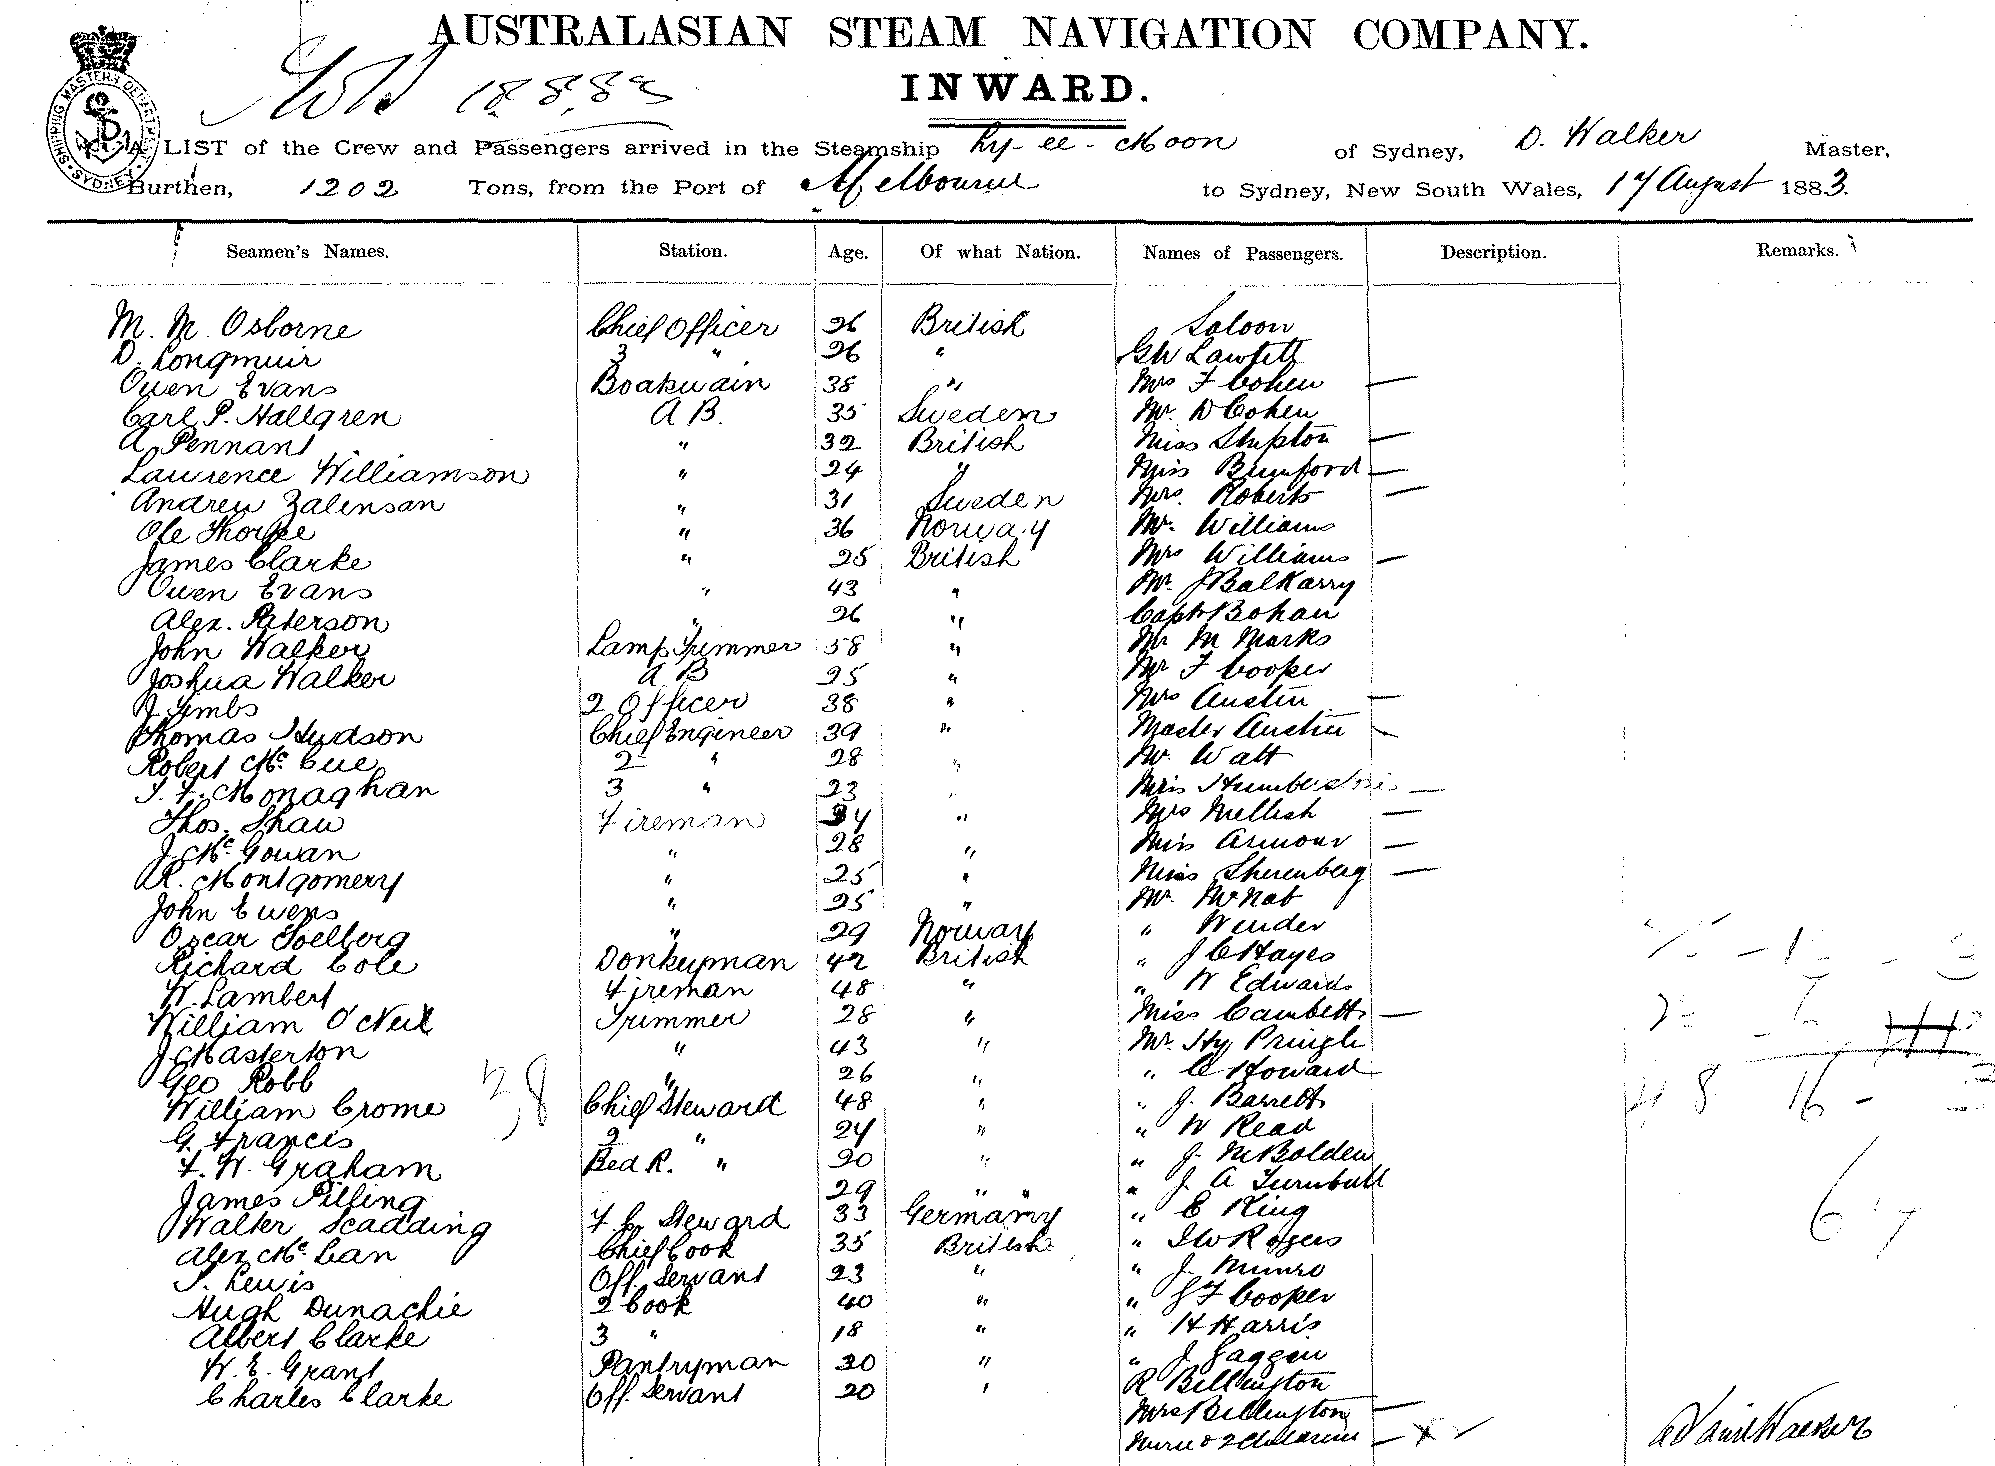 AUSTRALASIAN STEAM NAVIGATION COMPANY.
INWARD.
18.8.83
SHIPPING MASTER'S DEPARTMENT SYDNEY
A LIST of the Crew and Passengers arrived in the Steamship Ly-ee-Moon of Sydney, D. Walker Master,
Burthen, 1202 Tons, from the Port of Melbourne to Sydney, New South Wales, 17 August 1883.
Seamen's Names. Station. Age. Of what Nation. Names of Passengers. Description. Remarks.
M. M. Osborne Chief Officer 26 British Saloon
D. Longmuir 3 " 26 " GW
Owen Evans Boatswain 38 " Mrs F Cohen —
Carl P. Hallgren A B. 35 Sweden Mr. D Cohen
A Pennant " 32 British Miss Shipton —
Lawrence Williamson " 24 " Miss Brumford —
Andrew Zalenson " 31 Sweden Mrs. Roberts —
Ole Thorpe " 36 Norway Mr. Williams
James Clarke " 25 British Mrs Williams —
Owen Evans " 43 " Mr. J Balkarry
Alex. Peterson " 26 " Capt Bohan
John Walker Lamp Trimmer 58 " Mr M Marks
Joshua Walker A B 25 " Mr F Cooper
J Timbs 2 Officer 38 " Mrs Austin —
Thomas Hudson Chief Engineer 39 " Master Austin —
Robert McCue 2 " 28 " Mr. Watt
T. F. Monaghan 3 " 23 " Miss Humberstone —
Thos. Shaw Fireman 34 " Mrs Mellish —
J. McGowan " 28 " Miss Armour —
R. Montgomery " 25 " Miss Sherenberg —
John Ewens " 25 " Mr. McNab
Oscar Soelberg " 29 Norway " Winder
Richard Cole Donkeyman 42 British " J C Hayes
W. Lambert Fireman 48 " " W Edwards
William O'Neil Trimmer 28 " Miss Cambetts —
J Masterton " 43 " Mr. Hy Pringle
Geo Robb " 26 " " C Howard
William Crome Chief Steward 48 " " J. Barrett
G. Francis 2 " 24 " " W Read
F. W. Graham Bed R. " 20 " " J. McBolden
James Pilling 29 " " " J. A Turnbull
Walter Scadding F C Steward 33 Germany " E King
Alex McCan Chief Cook 35 British " Rogers
T. Lewis Off. Servant 23 " " J. Munro
Hugh Dunachie 2 Cook 40 " " Cooper
Albert Clarke 3 " 18 " " H Harris
W. E. Grant Pantryman 20 " " J. Gaggin
Charles Clarke Off. Servant 20 " R Billington
Mrs Billington —
Nurse & 2 Children — x
38
48 16 -
67
Daniel Walker